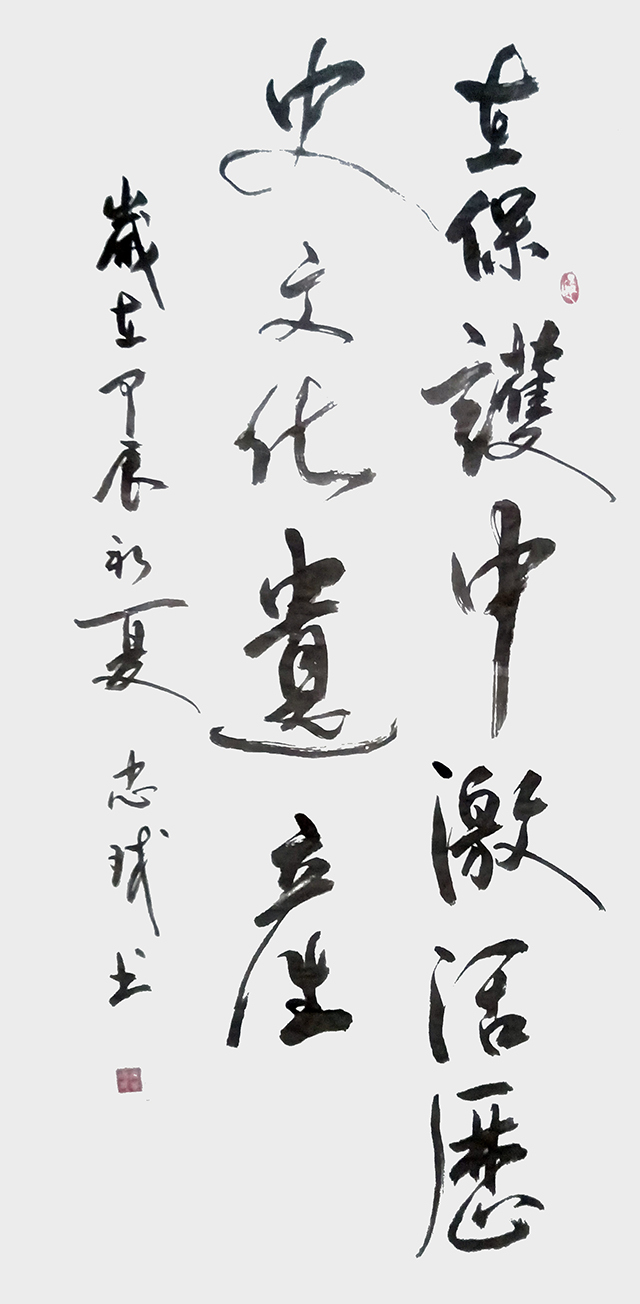 在保護中激活歷
史文化遺產
歲在甲辰初夏 忠斌书